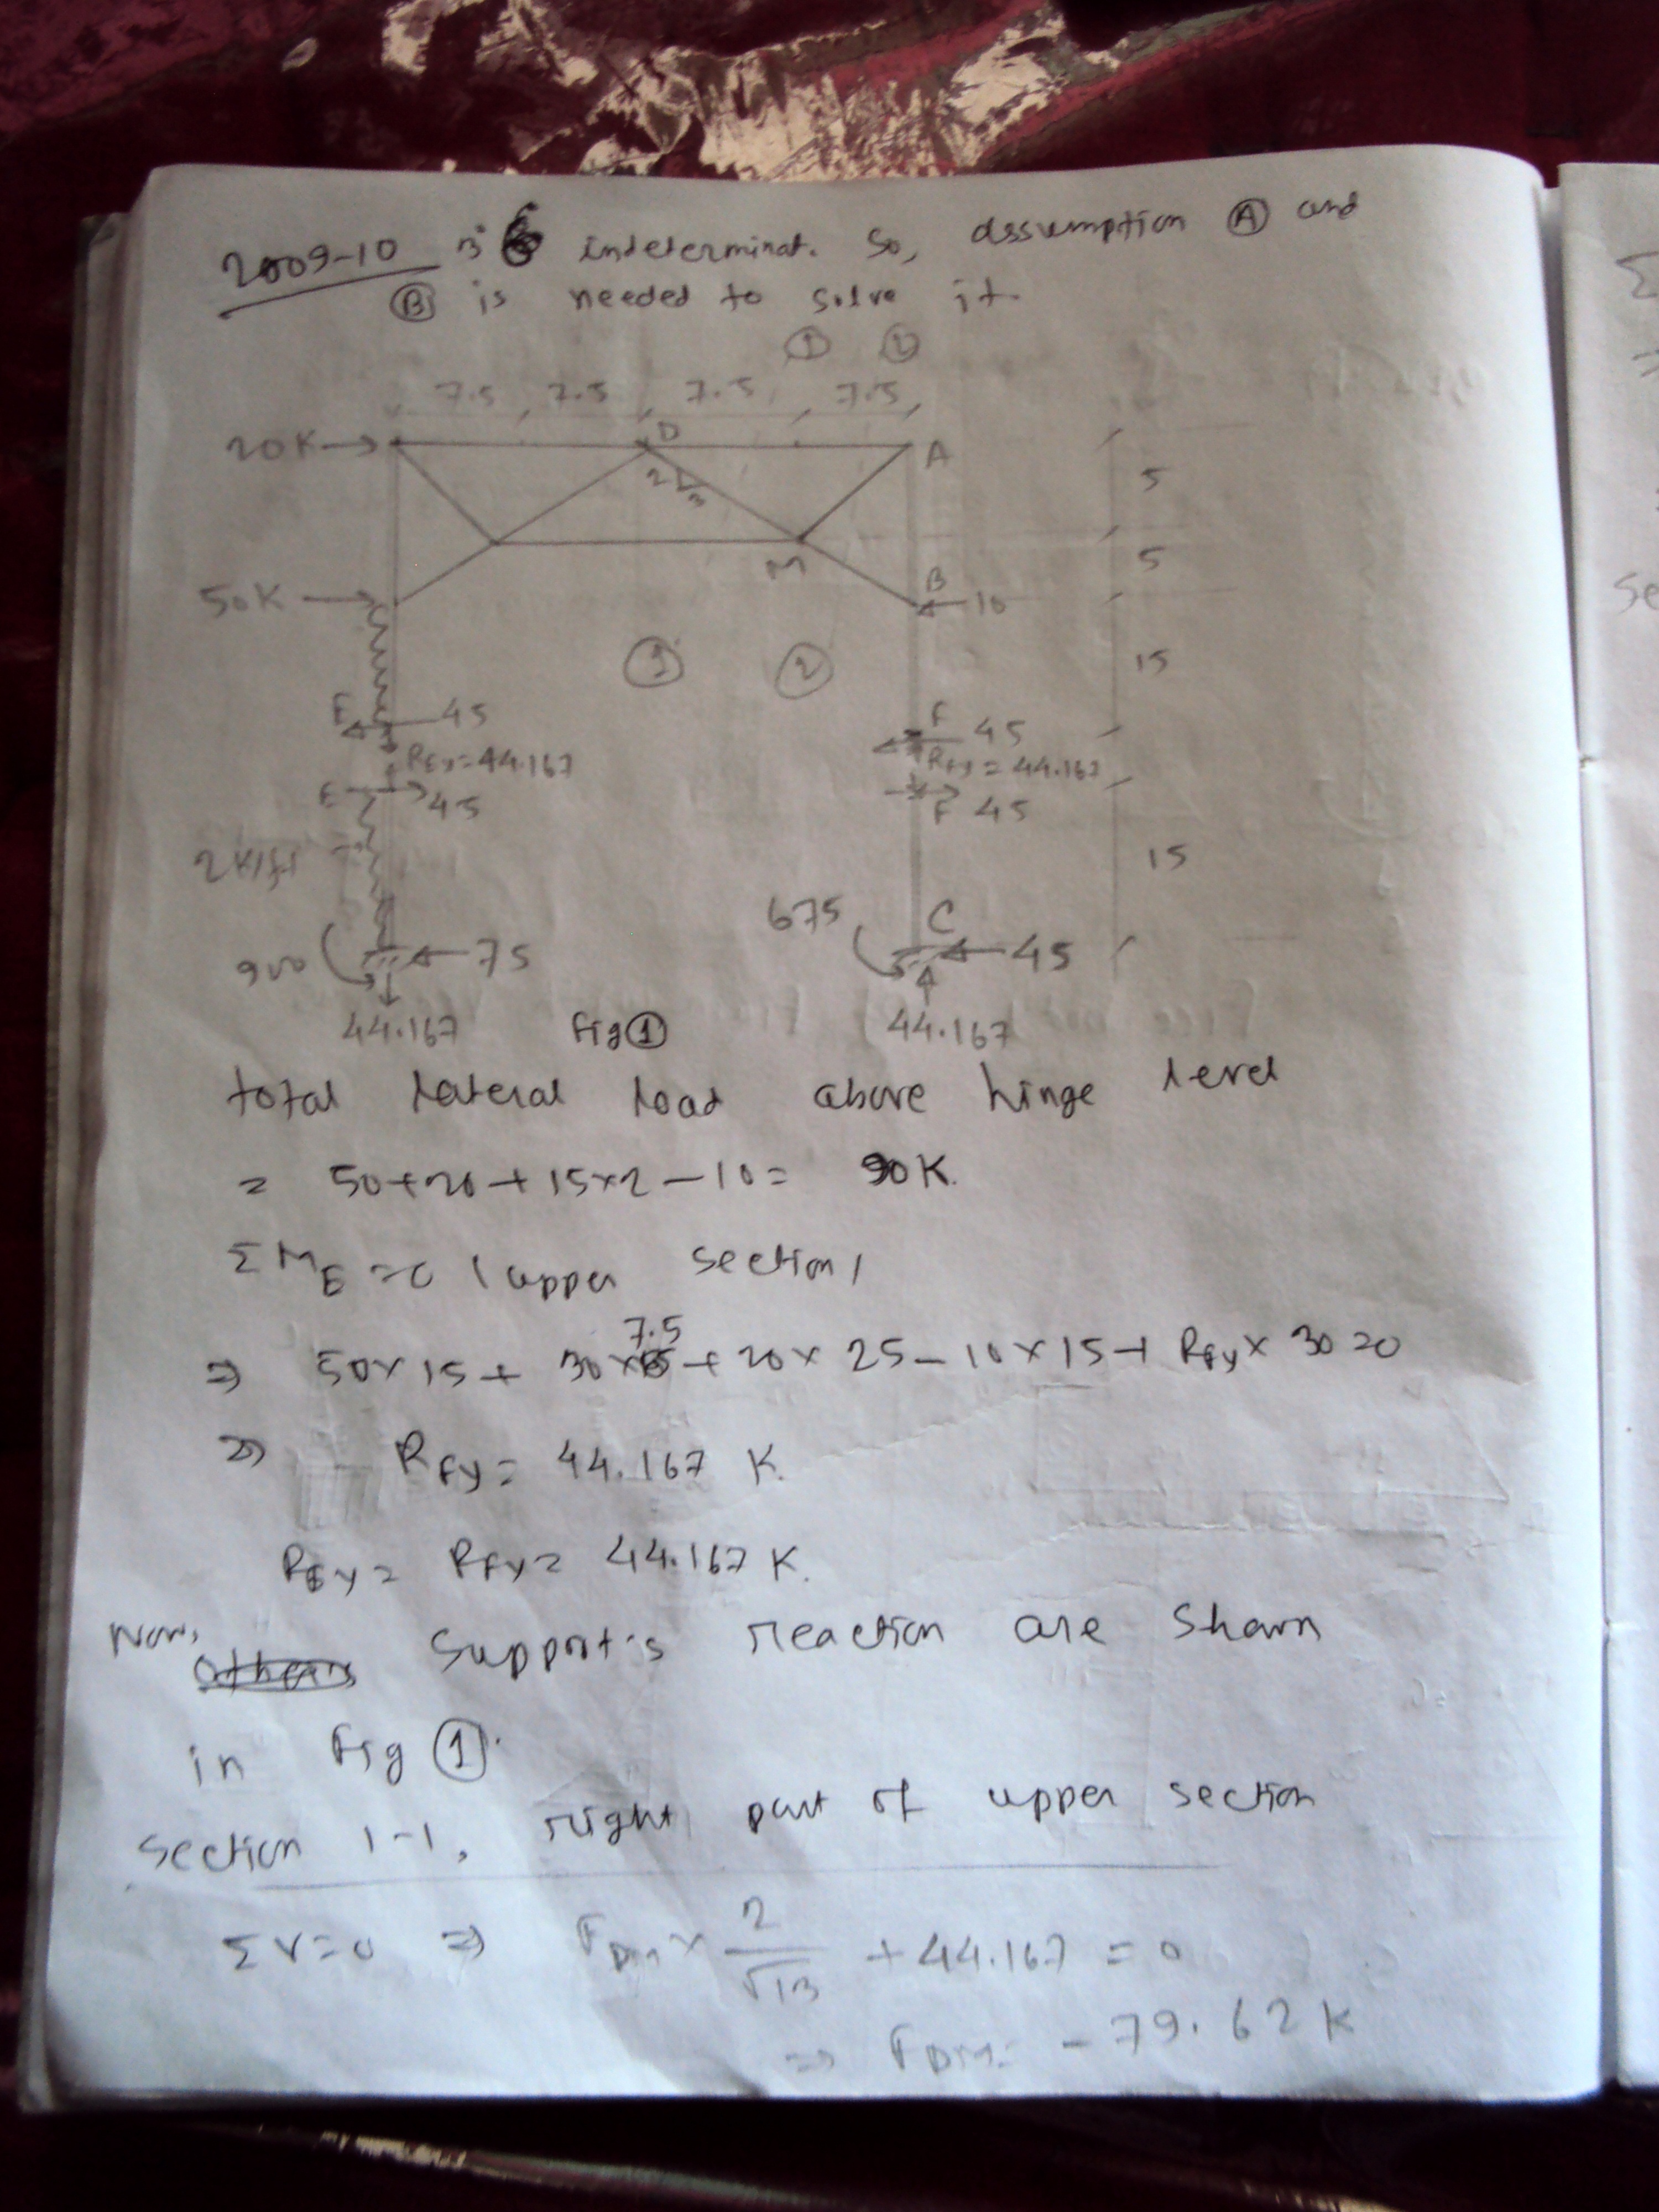 2009-10 indeterminat. So, assumption Ⓐ and
Ⓑ is needed to solve it.
① ②
7.5 7.5 7.5 7.5
20K → D A
2 3 5
M 5
50K → B
10
① ② 15
E 45 F 45
REy=44.167 RFy=44.167
E 45 F 45
2K/ft 15
675 C
900 75 45
44.167 Fig① 44.167
total lateral load above hinge level
= 50+20+15×2-10= 90K.
ΣME=0 (upper section)
⇒ 50×15+ 30×7.5+20×25-10×15+ RFy×30=0
⇒ RFy= 44.167 K.
REy= RFy= 44.167 K.
Now, support's reaction are shown
in Fig ①.
section 1-1, right part of upper section
ΣV=0 ⇒ FDM× 2/√13 +44.167 = 0
⇒ FDM= -79.62 K